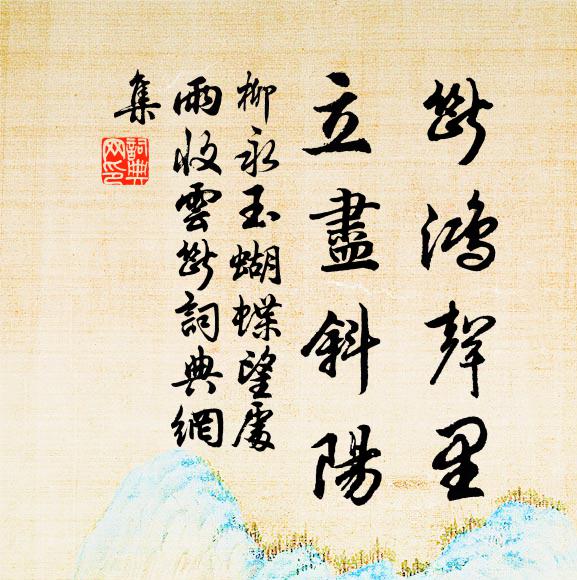 斷鴻聲里
立盡斜陽
柳永玉蝴蝶望處
雨收雲斷詞典網
集
詞典
网印